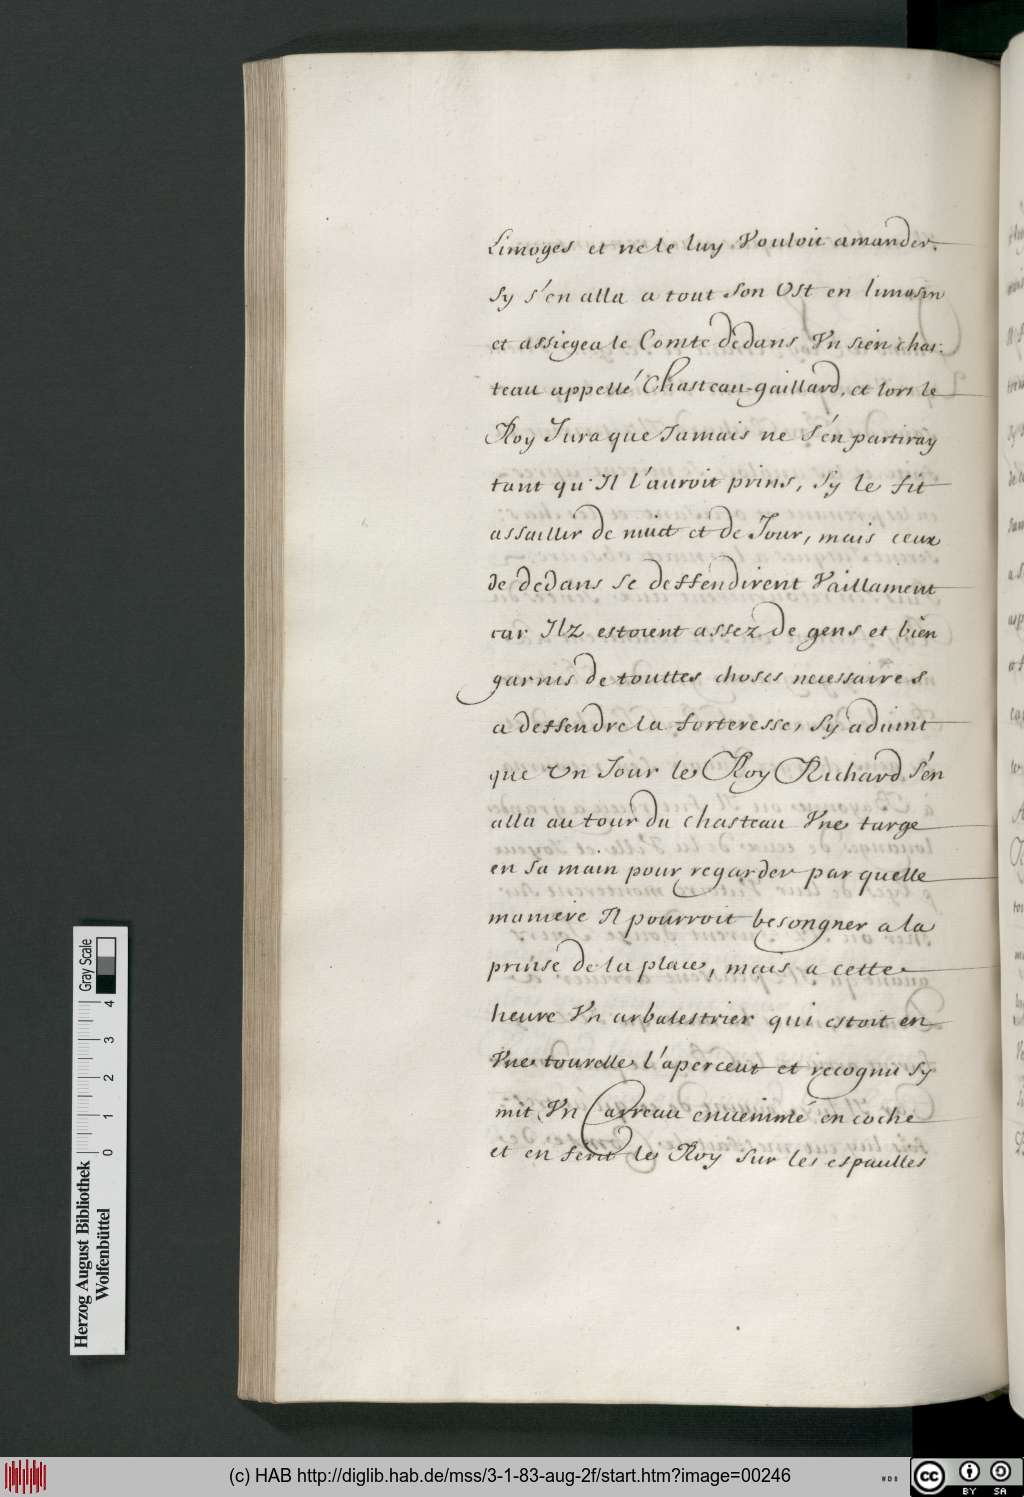 Limoges et ne le luy Vouloit amander.
Sy s'en alla a tout son Ost en limosin
et assiegea le Comte dedans Vn sien chas:
teau appellé Chasteau-gaillard, et lors le
Roy Jura que Jamais ne s'en partiray
tant qu'Il l'auroit prins, Sy le fit
assaillir de nuict et de Jour, mais ceux
de dedans se deffendirent Vaillament
car Ilz estoient assez de gens et bien
garnis de touttes choses necessaires
a deffendre la forteresse, Sy aduint
que Vn Jour le Roy Richard s'en
alla autour du chasteau Vne targe
en sa main pour regarder par quelle
maniere Il pourroit besongner a la
prinse de la place, mais a cette
heure Vn arbalestrier qui estoit en
Vne tourelle l'aperceut et recognu Sy
mit Vn Carreau enuenimé en coche
et en ferit le Roy sur les espaulles
Herzog August Bibliothek
Wolfenbüttel
0 1 2 3 4
Gray Scale
(c) HAB http://diglib.hab.de/mss/3-1-83-aug-2f/start.htm?image=00246
WDB
cc BY SA